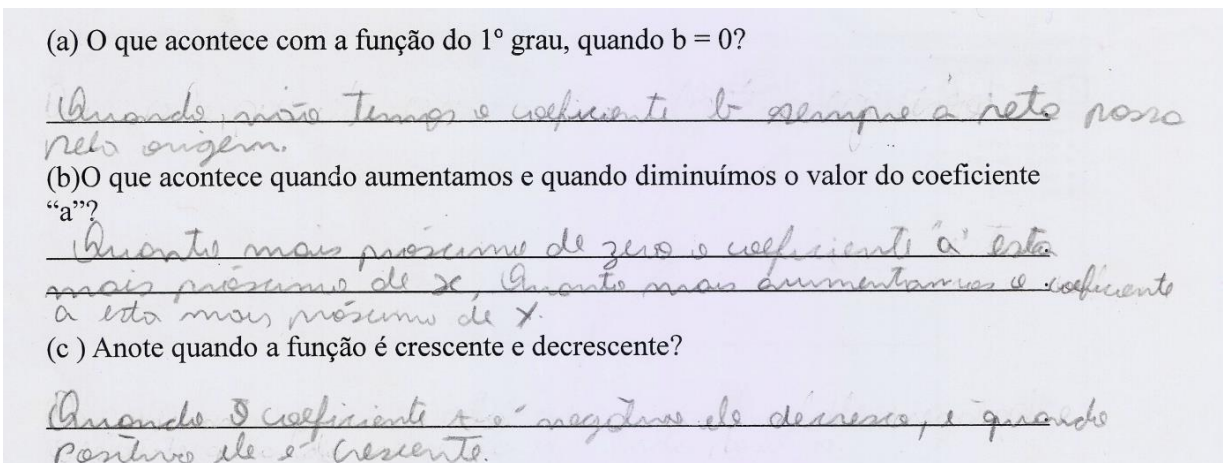 (a) O que acontece com a função do 1º grau, quando b = 0?
Quando não temos o coeficiente b sempre a reta passa
pela origem.
(b)O que acontece quando aumentamos e quando diminuímos o valor do coeficiente
“a”?
Quanto mais próximo de zero o coeficiente "a" esta
mais próximo de x, Quanto mais aumentamos o coeficiente
a esta mais próximo de y.
(c ) Anote quando a função é crescente e decrescente?
Quando o coeficiente é negativo ele decresce, e quando
positivo ele é crescente.